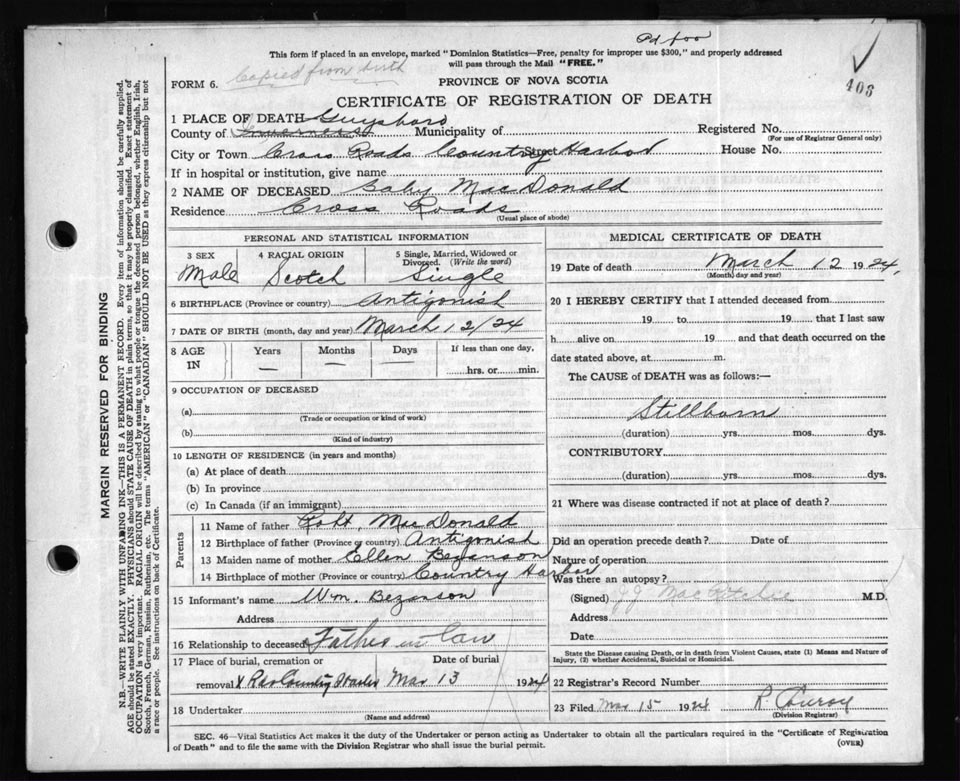 Pd
This form if placed in an envelope, marked "Dominion Statistics—Free, penalty for improper use $300," and properly addressed
will pass through the Mail "FREE."
403
FORM 6. Copied from birth
PROVINCE OF NOVA SCOTIA
CERTIFICATE OF REGISTRATION OF DEATH
1 PLACE OF DEATH Guysboro
County of Inverness Municipality of Registered No.
(For use of Registrar General only)
City or Town Cross Roads Country Harbor Street House No.
If in hospital or institution, give name
2 NAME OF DECEASED Baby MacDonald
Residence Cross Roads
(Usual place of abode)
PERSONAL AND STATISTICAL INFORMATION
3 SEX 4 RACIAL ORIGIN 5 Single, Married, Widowed or
Divorced. (Write the word)
Male Scotch Single
6 BIRTHPLACE (Province or country) Antigonish
7 DATE OF BIRTH (month, day and year) March 12/24
8 AGE Years Months Days If less than one day,
IN — — hrs. or min.
9 OCCUPATION OF DECEASED
(a)
(Trade or occupation or kind of work)
(b)
(Kind of industry)
10 LENGTH OF RESIDENCE (in years and months)
(a) At place of death
(b) In province
(c) In Canada (if an immigrant)
Parents
11 Name of father Robt. MacDonald
12 Birthplace of father (Province or country) Antigonish
13 Maiden name of mother Ellen Bezanson
14 Birthplace of mother (Province or country) Country Harbor
15 Informant's name Wm. Bezanson
Address
16 Relationship to deceased Father in law
17 Place of burial, cremation or Date of burial
removal X Rds Country Harbor Mar 13 1924
18 Undertaker
(Name and address)
MEDICAL CERTIFICATE OF DEATH
19 Date of death March 12 1924.
(Month, day and year)
20 I HEREBY CERTIFY that I attended deceased from
19 to 19 that I last saw
h alive on 19 and that death occurred on the
date stated above, at m.
The CAUSE of DEATH was as follows:—
Stillborn
(duration) yrs. mos. dys.
CONTRIBUTORY
(duration) yrs. mos. dys.
21 Where was disease contracted if not at place of death?
Did an operation precede death? Date of
Nature of operation
Was there an autopsy?
(Signed) J.J. M.D.
Address
Date
State the Disease causing Death, or in death from Violent Causes, state (1) Means and Nature of
Injury, (2) whether Accidental, Suicidal or Homicidal.
22 Registrar's Record Number
23 Filed Mar 15 1924 R.
(Division Registrar)
SEC. 46—Vital Statistics Act makes it the duty of the Undertaker or person acting as Undertaker to obtain all the particulars required in the "Certificate of Registration
of Death" and to file the same with the Division Registrar who shall issue the burial permit.
(OVER)
MARGIN RESERVED FOR BINDING
N.B.—WRITE PLAINLY WITH UNFADING INK—THIS IS A PERMANENT RECORD. Every item of information should be carefully supplied.
AGE should be stated EXACTLY. PHYSICIANS should STATE CAUSE OF DEATH in plain terms, so that it may be properly classified. Exact statement of
OCCUPATION is very important. RACIAL ORIGIN will be described by stating to what people or tongue the deceased person belonged, whether English, Irish,
Scotch, French, German, Russian, Ruthenian, etc. The terms "AMERICAN" or "CANADIAN" SHOULD NOT BE USED as they express citizenship but not
a race or people. See instructions on back of Certificate.